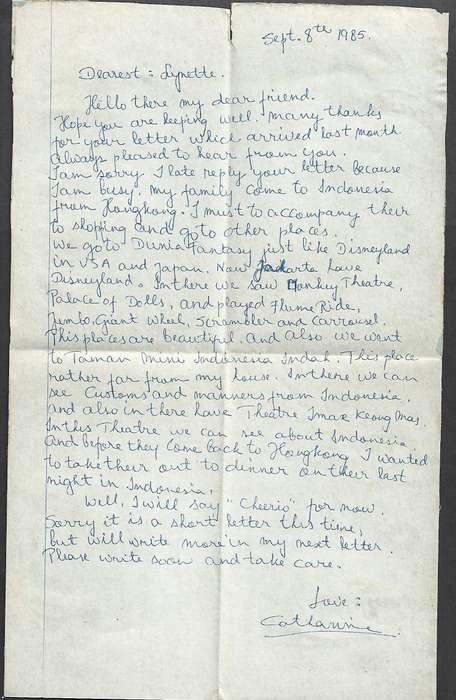 Sept. 8th 1985.
Dearest : Lynette.
Hello there my dear friend.
Hope you are keeping well. many thanks
for your letter which arrived last month.
always pleased to hear from you.
I am sorry I late reply your letter because
I am busy, my family come to Indonesia
from Hongkong. I must to accompany their
to shopping and go to other places.
We go to Dunia Fantasy just like Disneyland
in USA and Japan. Now Jakarta have
Disneyland. In there we saw Monkey Theatre,
Palace of Dolls, and played Flume Ride,
Jumbo, Giant Wheel, Scrambler and Carrousel.
This places are beautiful. and also we went
to Taman Mini Indonesia Indah. This place
rather far from my house. In there we can
see Customs and manners from Indonesia.
and also in there have Theatre Imax Keong Mas.
In this Theatre we can see about Indonesia.
And before they come back to Hongkong I wanted
to take their out to dinner on their last
night in Indonesia.
Well, I will say "Cheerio" for now.
Sorry it is a short letter this time,
but will write more in my next letter.
Please write soon and take care.
Love :
Catharine